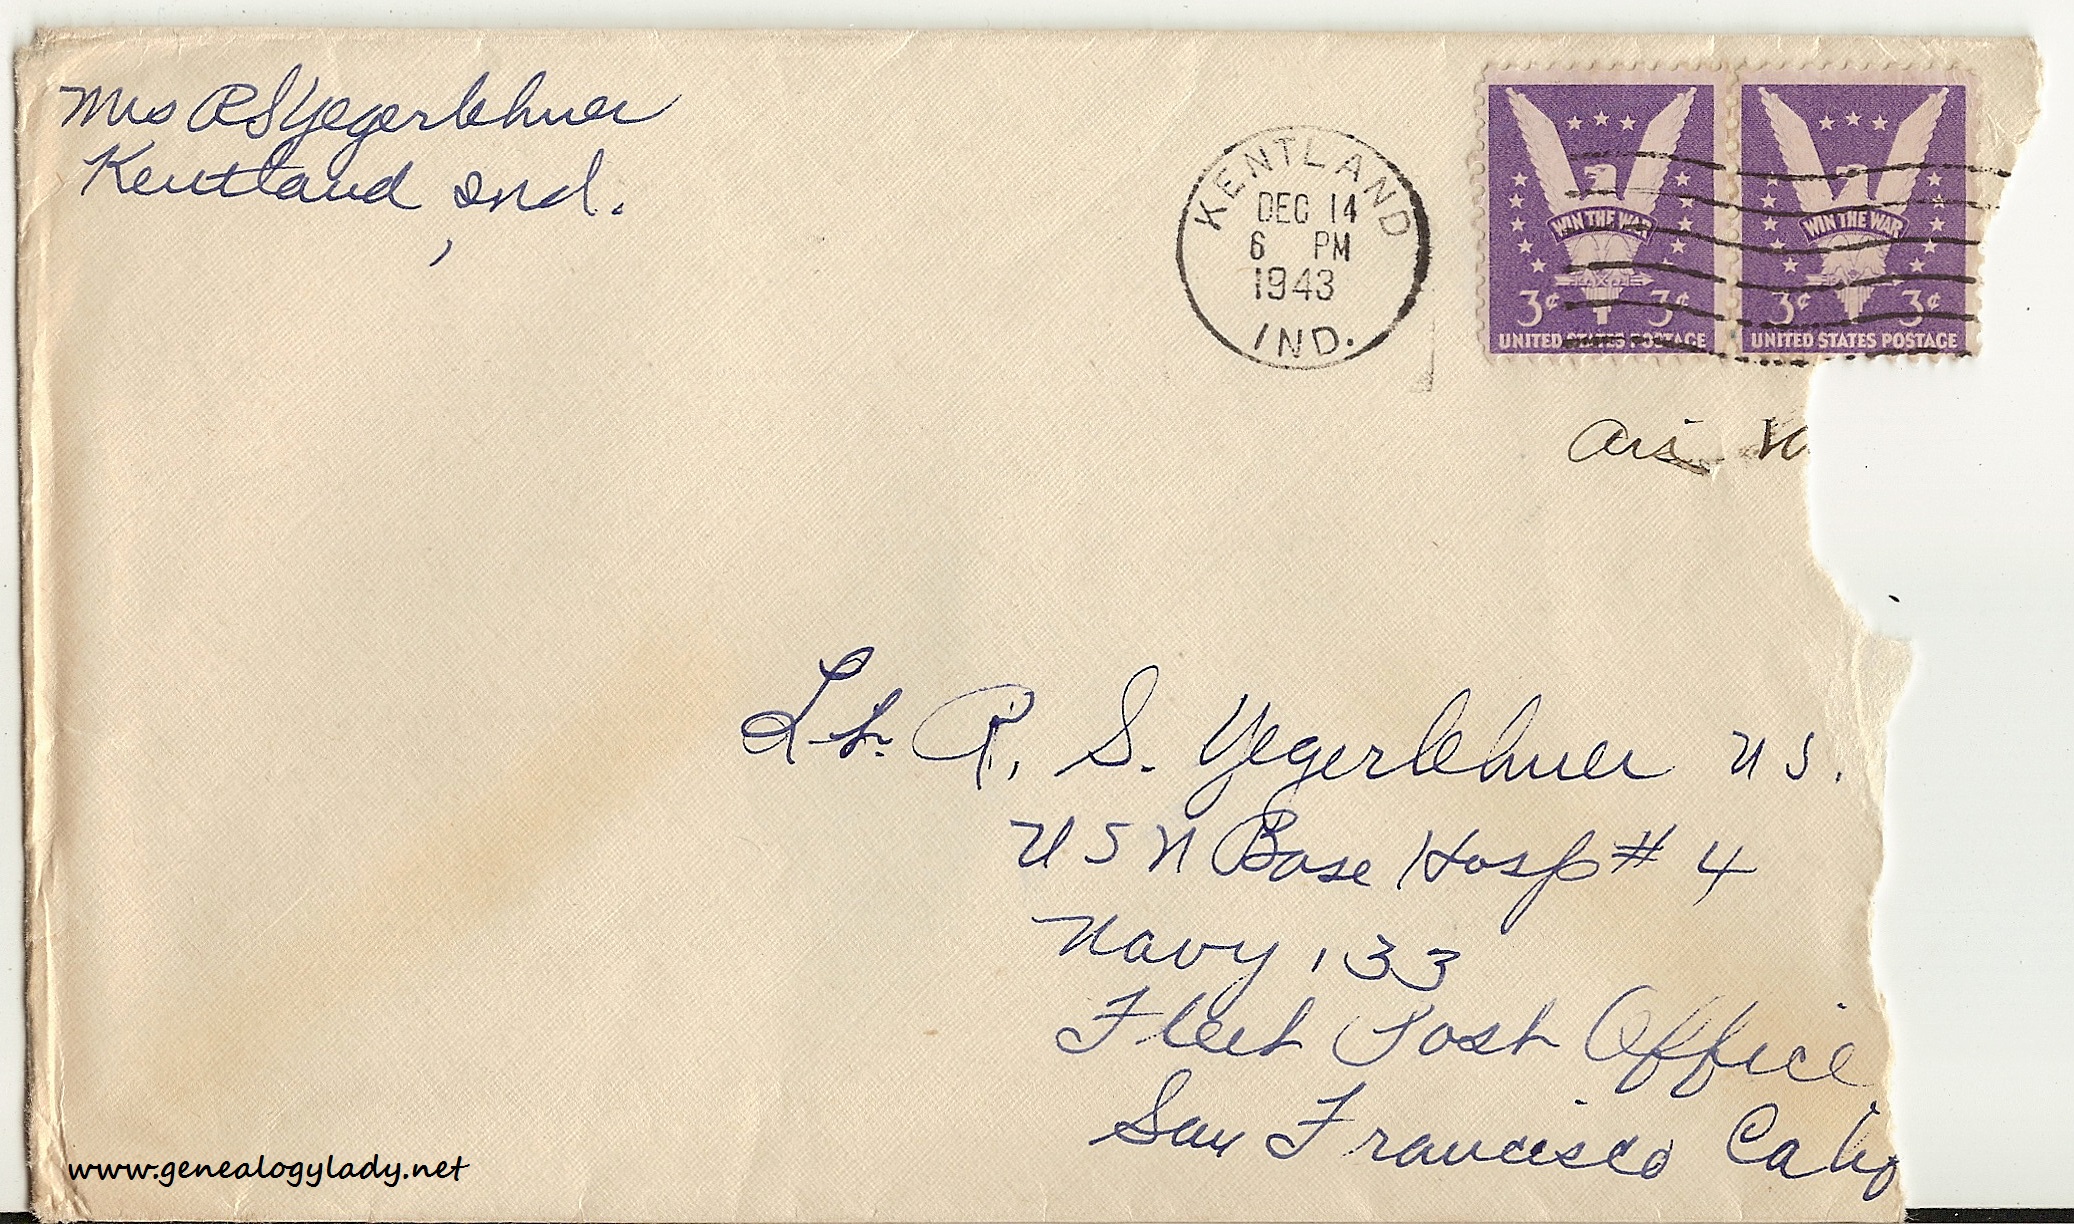 Mrs R S Yegerlehner
Kentland, Ind.
KENTLAND
DEC 14
6 PM
1943
IND.
WIN THE WAR
3¢ 3¢
UNITED STATES POSTAGE
WIN THE WAR
3¢ 3¢
UNITED STATES POSTAGE
Air
Lt. R. S. Yegerlehner U S.
U S N Base Hosp # 4
Navy 133
Fleet Post Office
San Francisco Calif
www.genealogylady.net